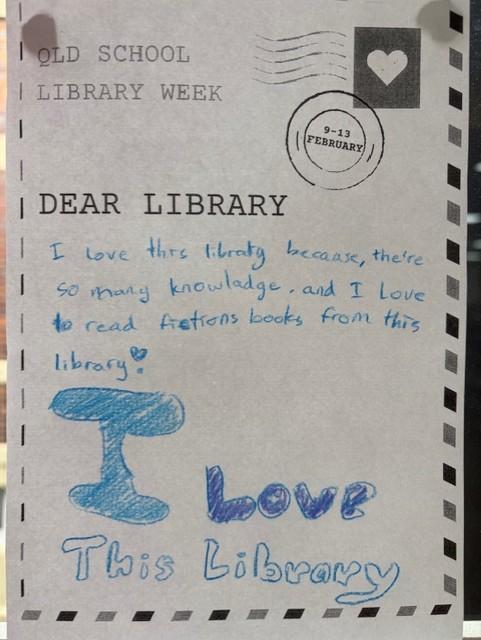 QLD SCHOOL
LIBRARY WEEK
9-13
FEBRUARY
DEAR LIBRARY
I love this library because, the're
so many knowladge. and I Love
to read fictions books from this
library!
I Love
This Library